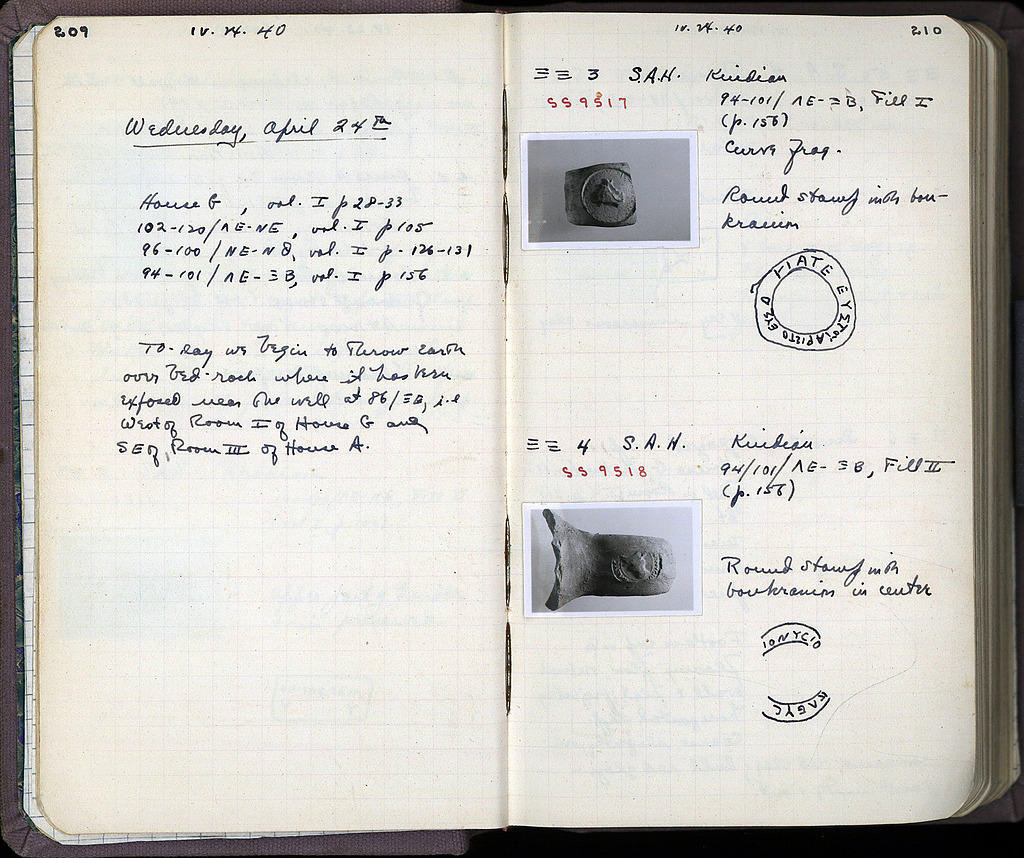 209
IV. 24. 40
Wednesday, April 24th
House G, vol. I p 28-33
102-120/ΛE-NE, vol. I p 105
96-100/NE-N8, vol. I p. 126-131
94-101/ΛE-ΞB, vol. I p 156
To-day we begin to throw earth
over bed-rock where it has been
exposed near the well at 86/ΞB, i.e
West of Room I of House G and
SE of, Room III of House A.
IV. 24. 40
210
ΞΞ 3 S.A.H. Knidian
SS 9517
94-101/ΛE-ΞB, Fill I
(p. 156)
Curve frag.
Round stamp with bou-
kranion
ΞΞ 4 S.A.H. Knidian
SS 9518
94/101/ΛE-ΞB, Fill II
(p. 156)
Round stamp with
boukranion in center
IONYCIO
KAGYC